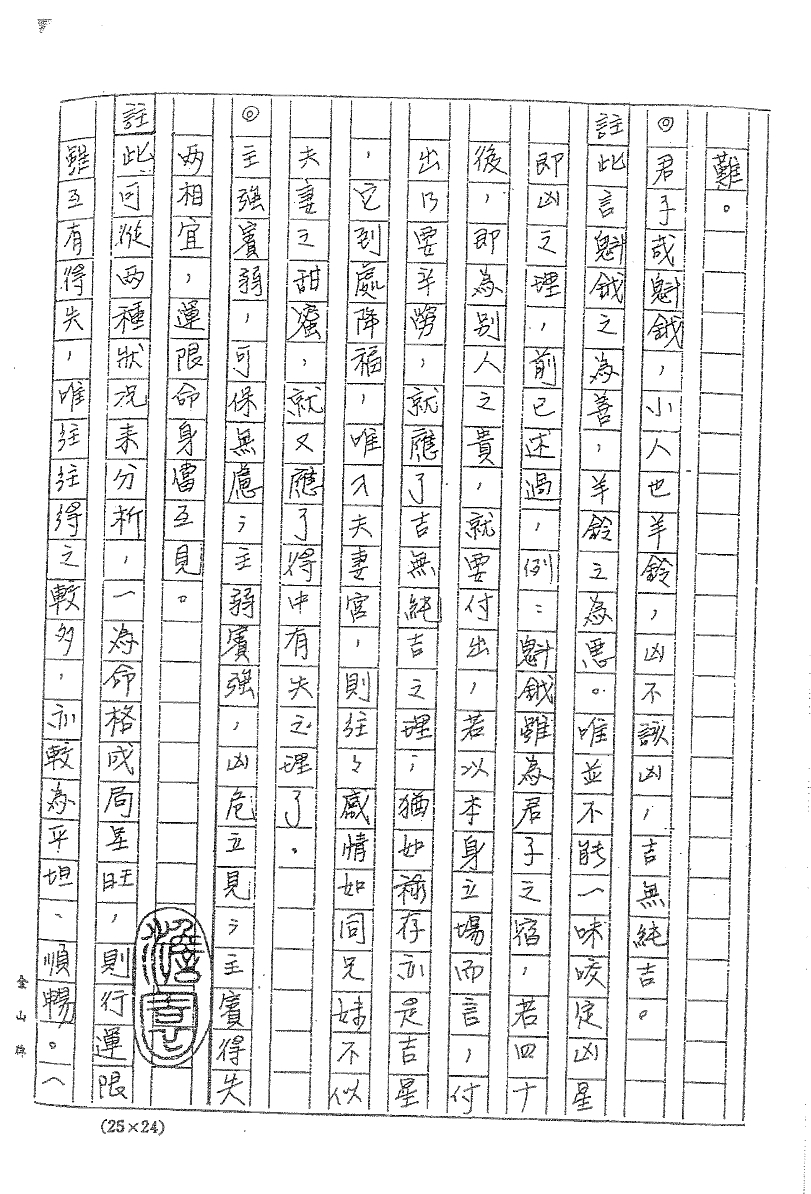 難。
◎君子或魁鉞，小人也羊鈴，凶不該凶，吉無純吉。
註此言魁鉞之為善，羊鈴之為惡。唯並不能一味咬定凶星
即凶之理，前已述過，例：魁鉞雖為君子之宿，若四十
後，即為別人之貴，就要付出，若以本身立場而言，付
出乃要辛勞，就應了吉無純吉之理；猶如祿存亦是吉星
，它到處降福，唯入夫妻宮，則往々感情如同兄妹不似
夫妻之甜蜜，就又應了得中有失之理了。
◎主強賓弱，可保無慮；主弱賓強，凶危立見；主賓得失
兩相宜，運限命身當互見。
註此可從兩種狀況來分析，一為命格成局呈旺，則行運限
雖互有得失，唯往往得之較多，亦較為平坦、順暢。（
金山牌
(25×24)